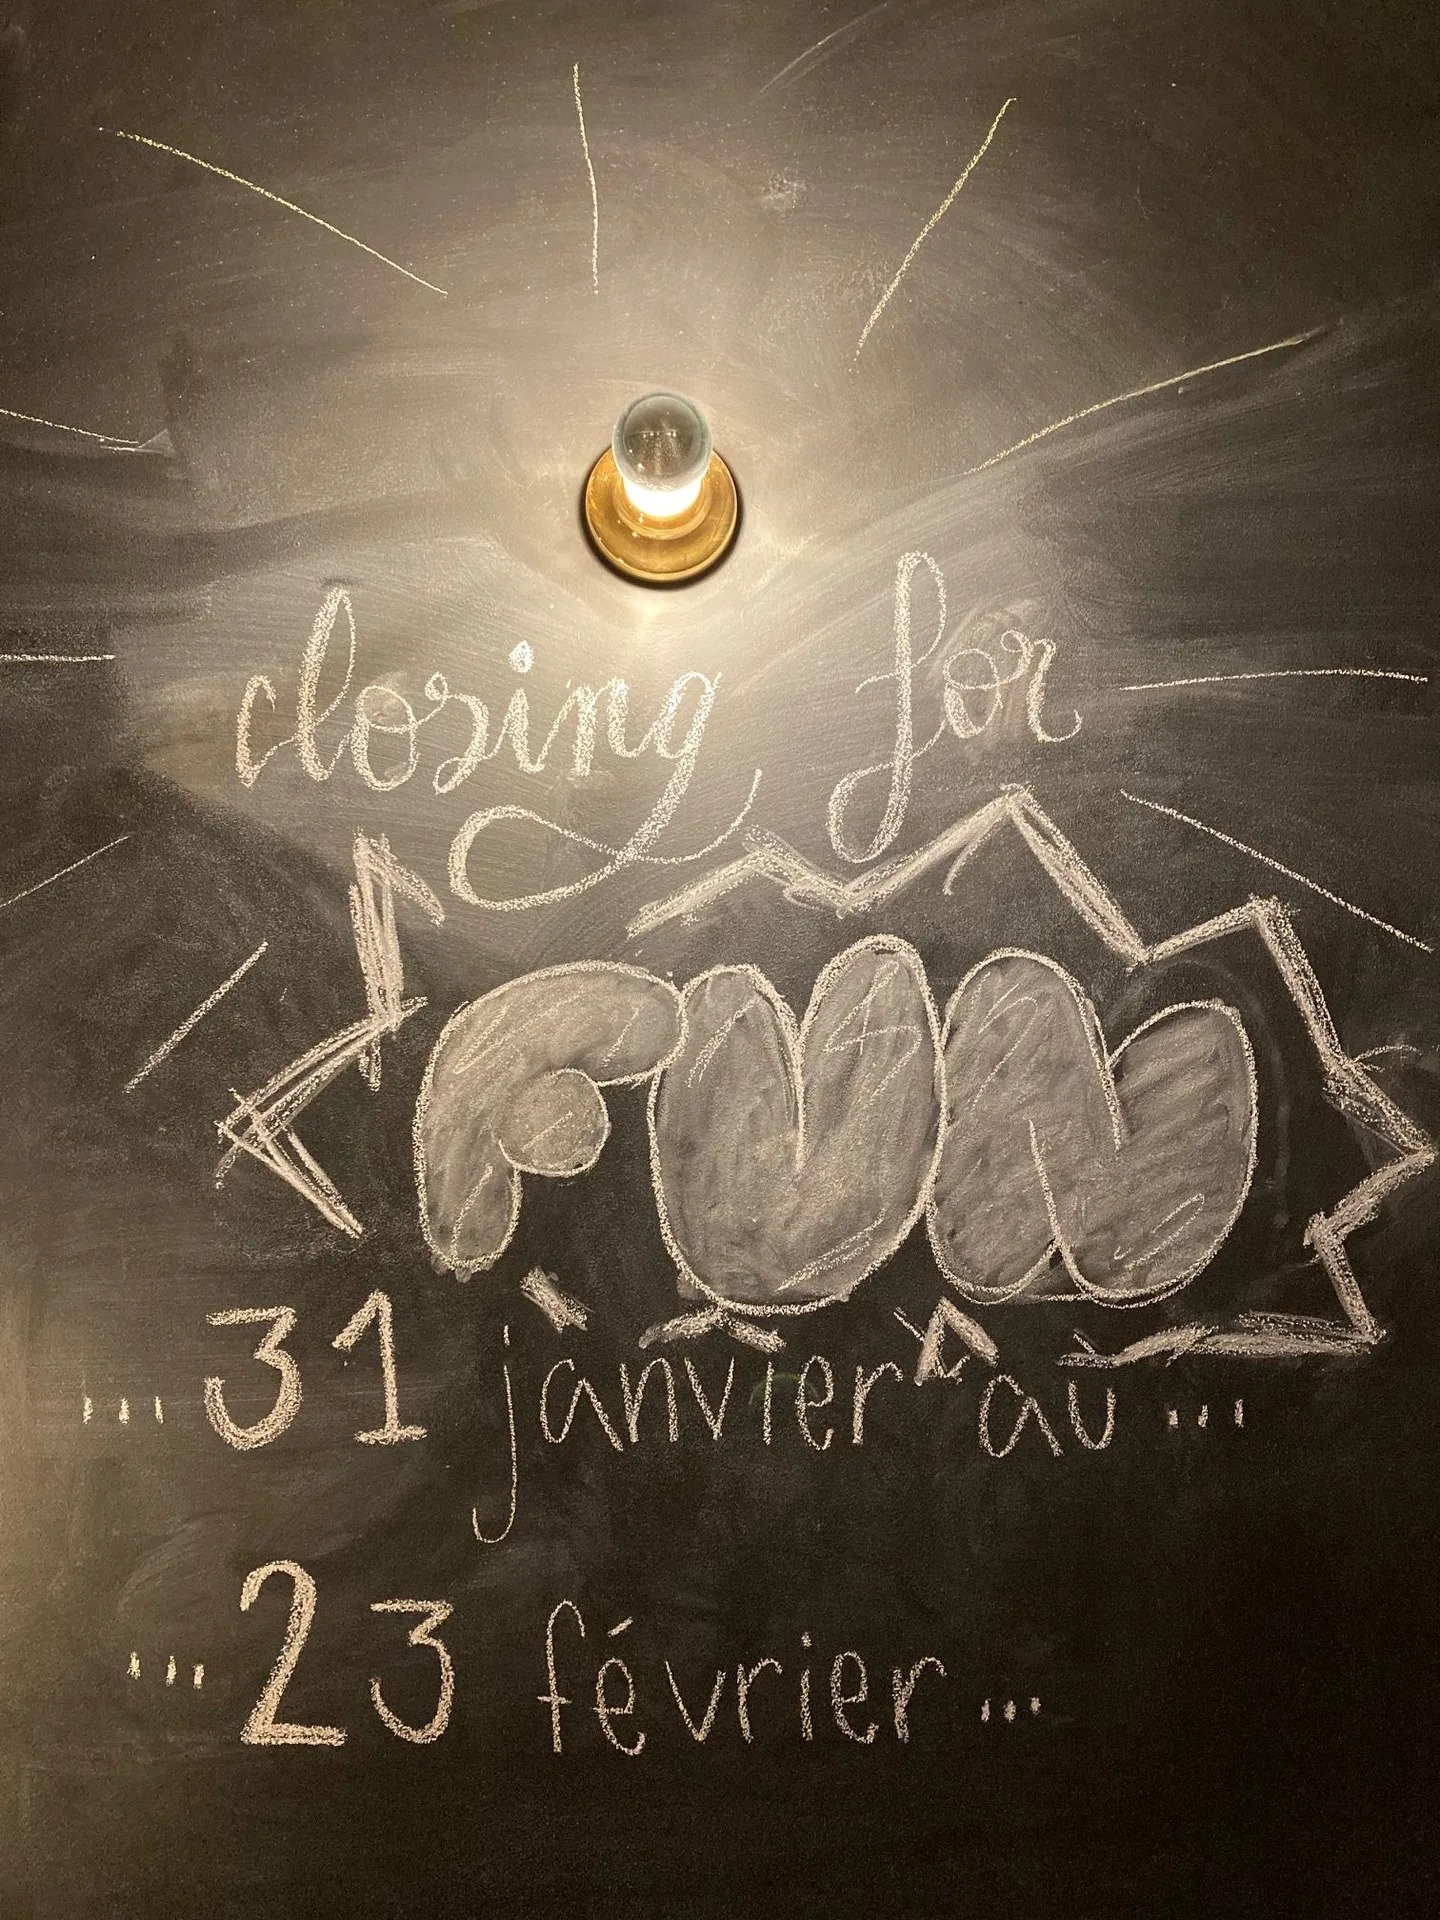 closing for
FUN
... 31 janvier au ...
... 23 février ...